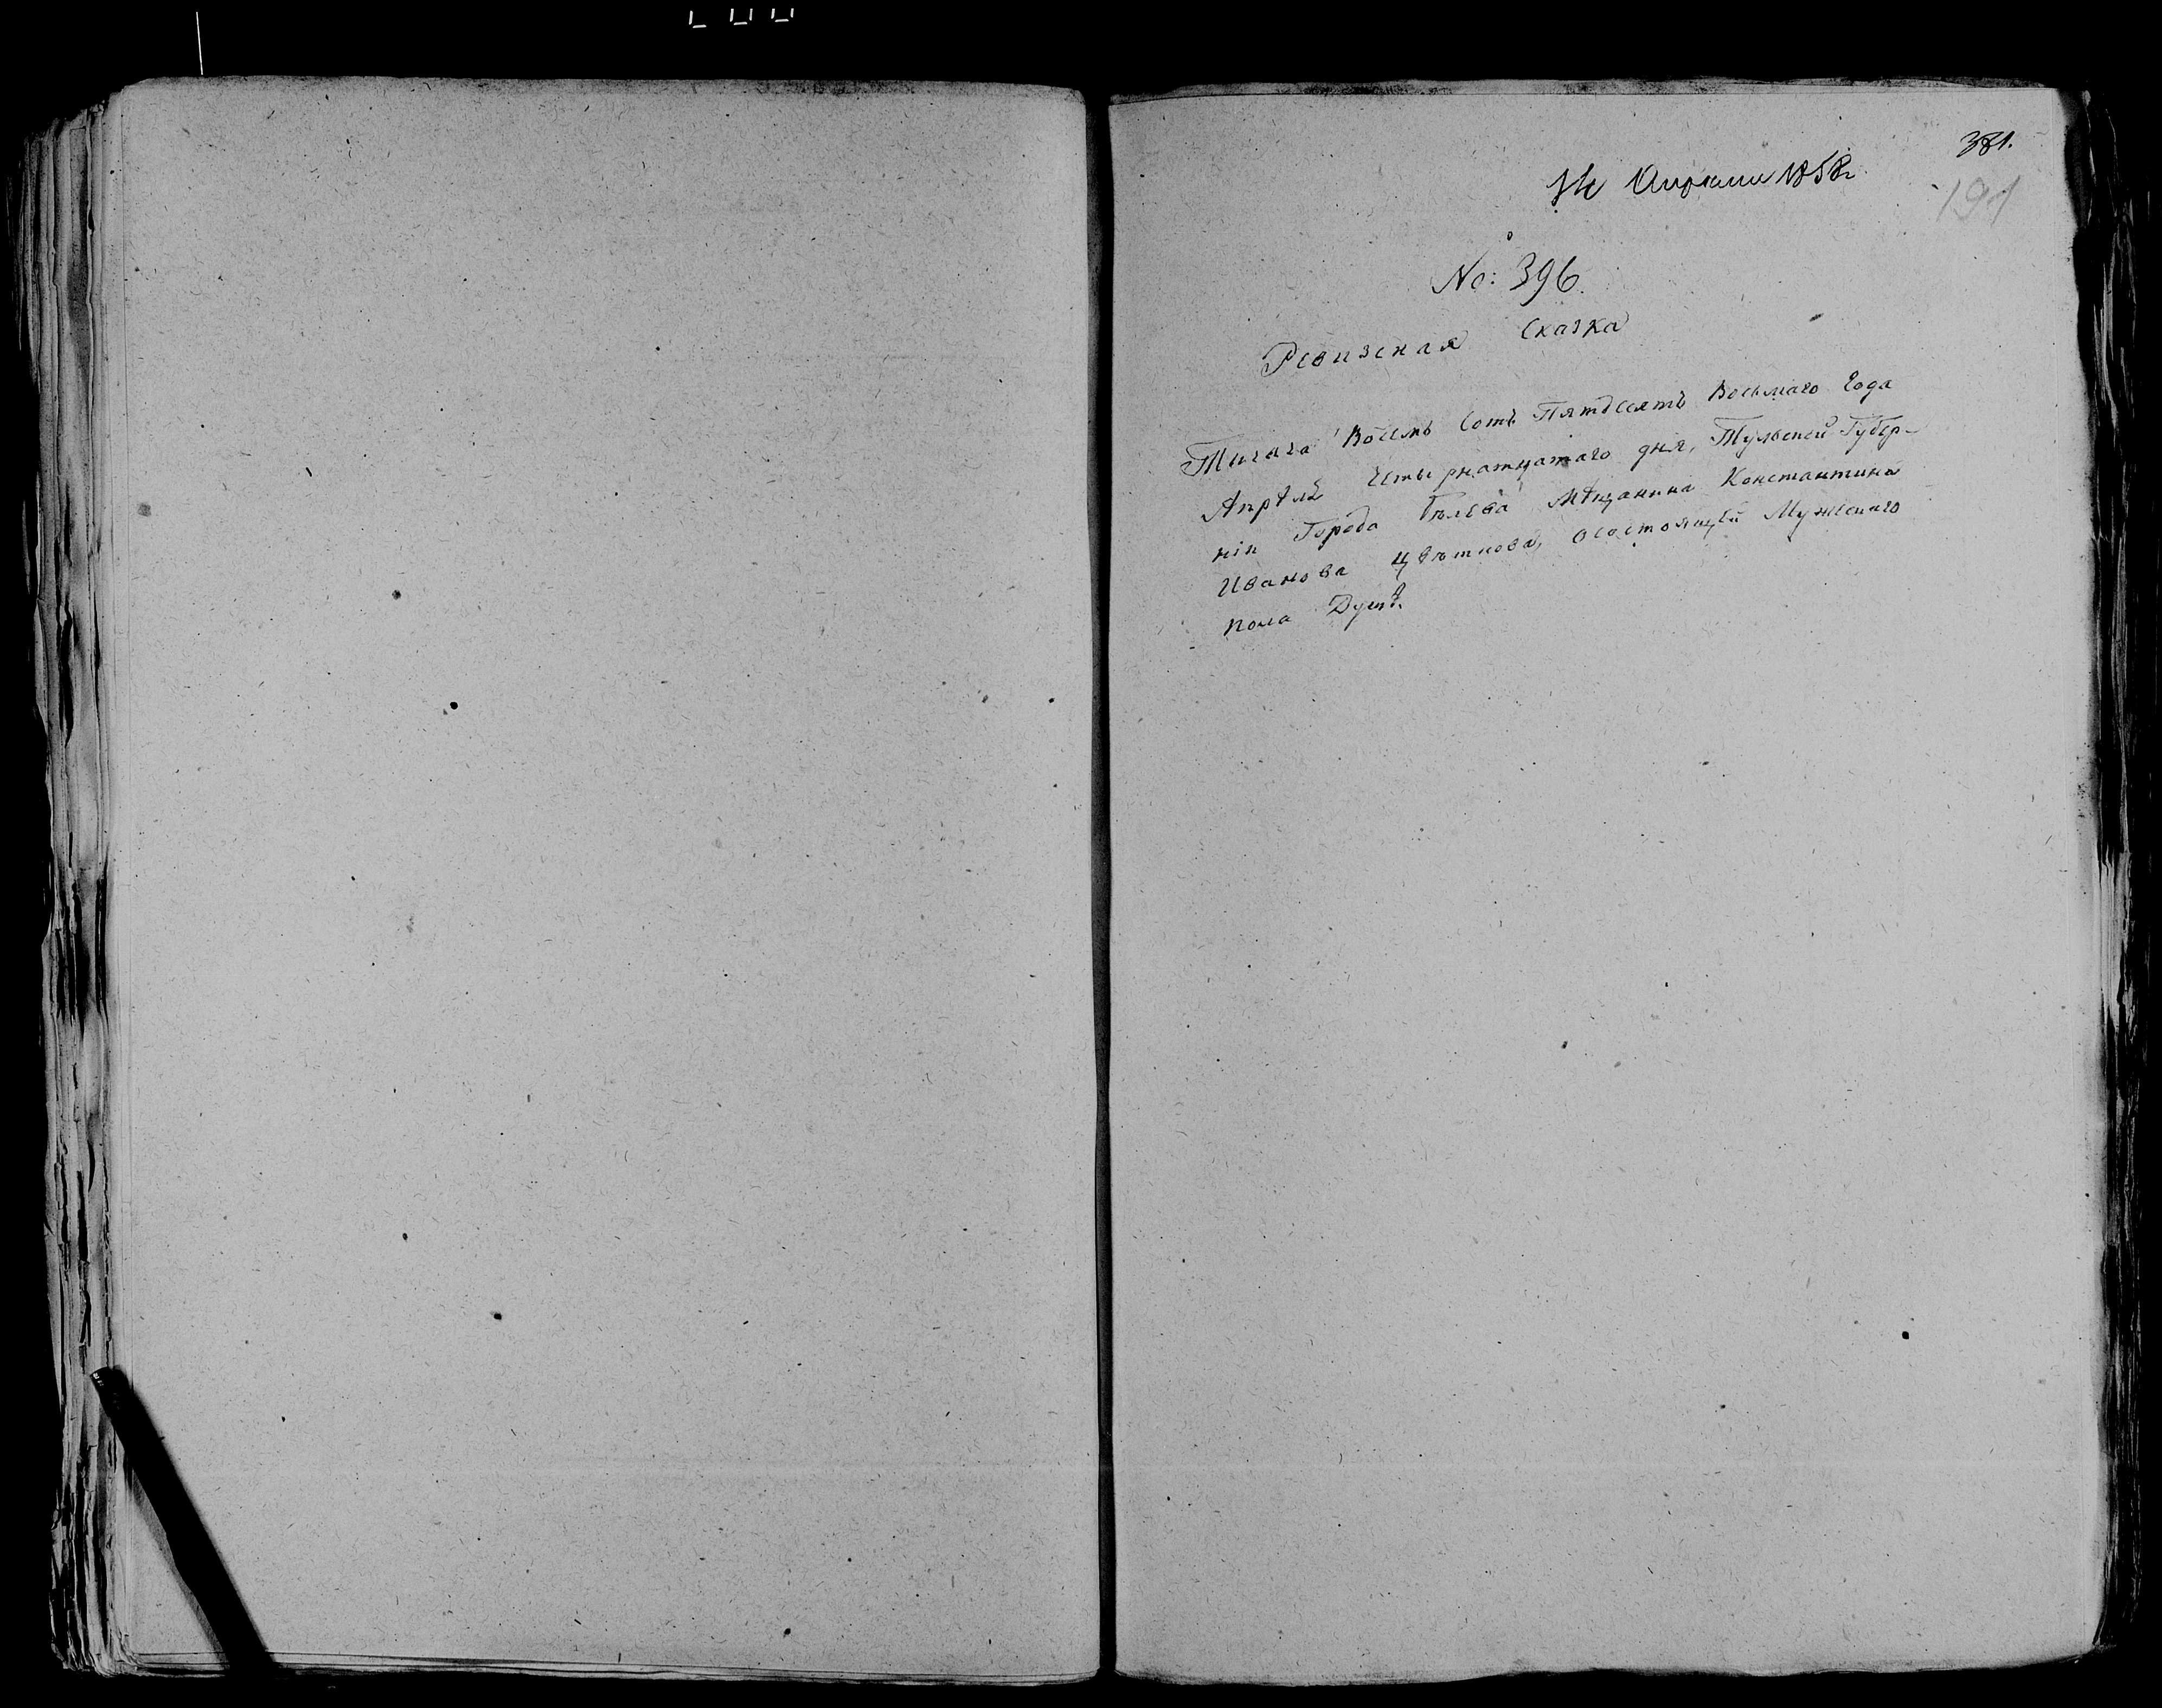 381.
14 Апрѣля 1858 г.
191
No: 396.
Ревизская Сказка
Тысяча Восемь Сотъ Пятдесятъ Восьмаго Года
Апрѣля Четырнатцатаго дня, Тульской Губер-
ніи Города Бѣлева Мѣщанина Константина
Иванова Цвѣткова, осостоящей Мужескаго
пола Душѣ.